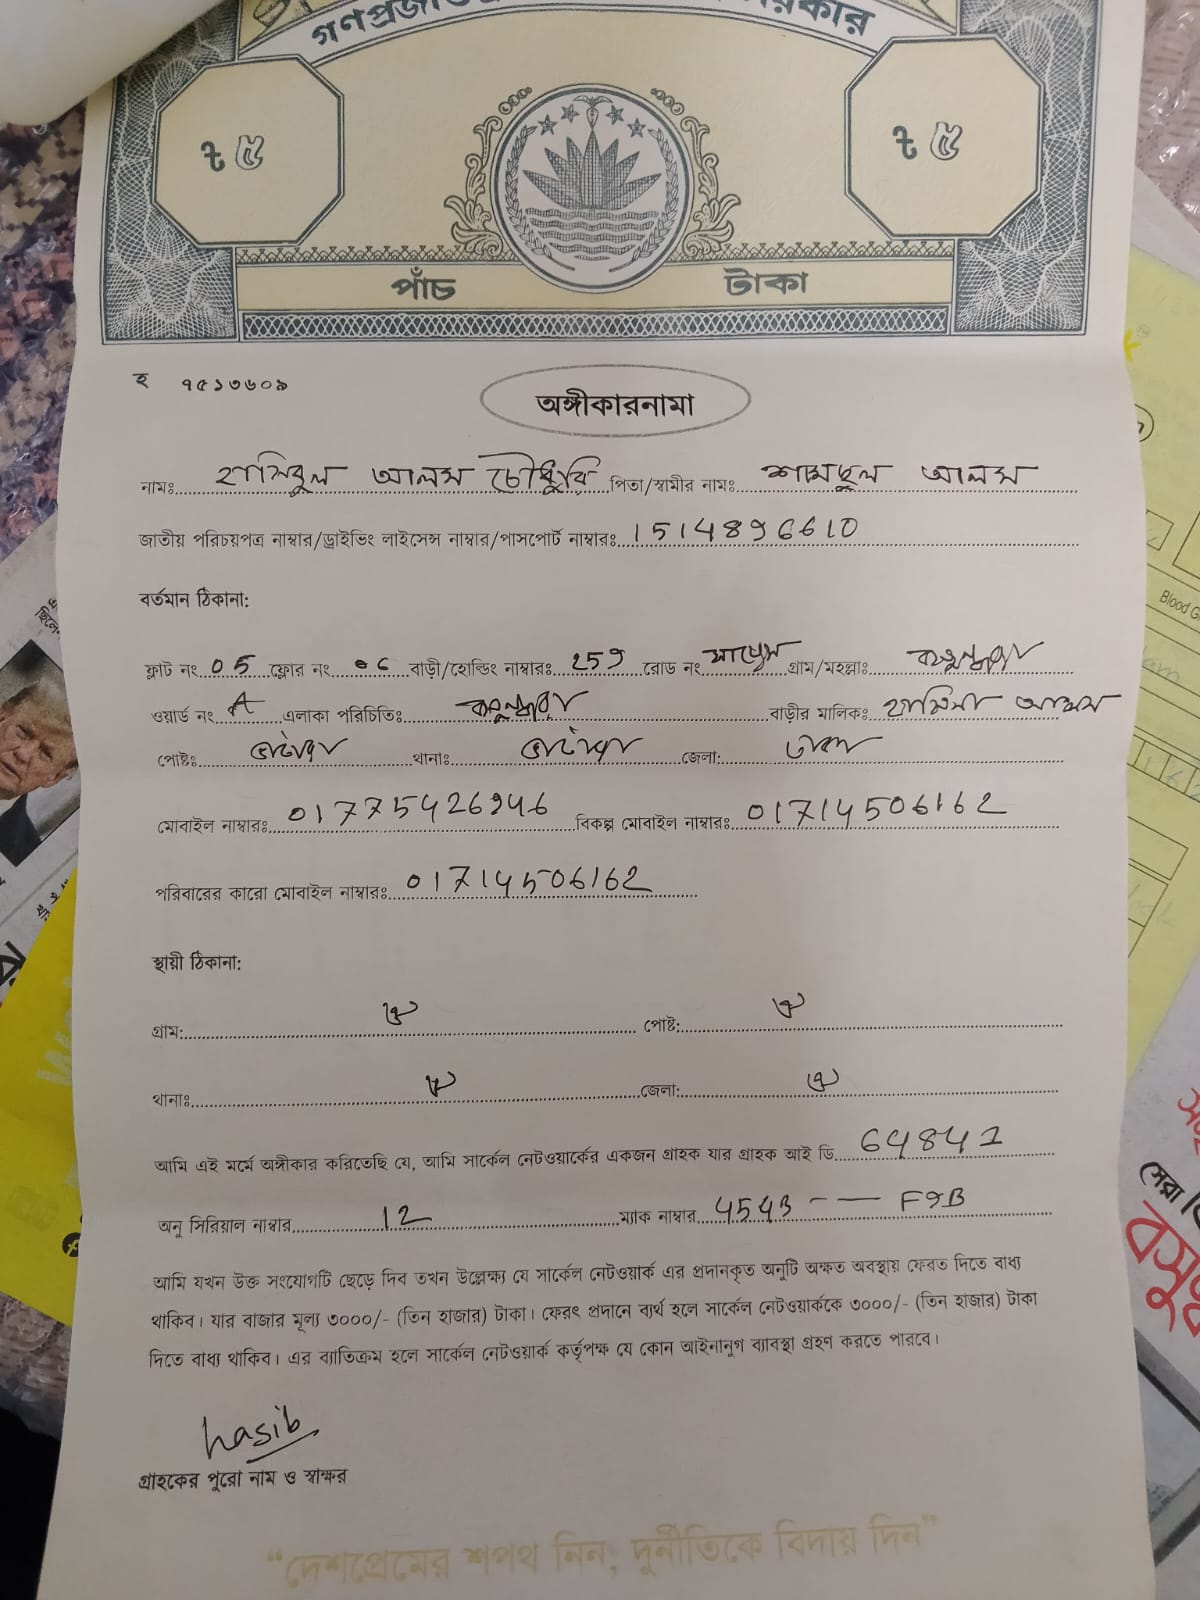 ৳ ৫ ৳ ৫
পাঁচ টাকা
হ ৭৫১৩৬০৯
অঙ্গীকারনামা
নামঃ হাসিবুল আলম চৌধুরি পিতা/স্বামীর নামঃ শামছুল আলম
জাতীয় পরিচয়পত্র নাম্বার/ড্রাইভিং লাইসেন্স নাম্বার/পাসপোর্ট নাম্বারঃ 1514896610
বর্তমান ঠিকানা:
ফ্লাট নং 05 ফ্লোর নং 06 বাড়ী/হোল্ডিং নাম্বারঃ 259 রোড নং গ্রাম/মহল্লাঃ বসুন্ধরা
ওয়ার্ড নং A এলাকা পরিচিতিঃ বসুন্ধরা বাড়ীর মালিকঃ হাসিনা আলম
পোষ্টঃ ভাটারা থানাঃ ভাটারা জেলা: ঢাকা
মোবাইল নাম্বারঃ 01775426946 বিকল্প মোবাইল নাম্বারঃ 01714506162
পরিবারের কারো মোবাইল নাম্বারঃ 01714506162
স্থায়ী ঠিকানা:
গ্রাম: ঐ পোষ্ট: ঐ
থানাঃ ঐ জেলা: ঐ
আমি এই মর্মে অঙ্গীকার করিতেছি যে, আমি সার্কেল নেটওয়ার্কের একজন গ্রাহক যার গ্রাহক আই ডি 64841
অনু সিরিয়াল নাম্বার 12 ম্যাক নাম্বার 4543 -- — F9B
আমি যখন উক্ত সংযোগটি ছেড়ে দিব তখন উল্লেক্ষ্য যে সার্কেল নেটওয়ার্ক এর প্রদানকৃত অনুটি অক্ষত অবস্থায় ফেরত দিতে বাধ্য
থাকিব। যার বাজার মূল্য ৩০০০/- (তিন হাজার) টাকা। ফেরৎ প্রদানে ব্যর্থ হলে সার্কেল নেটওয়ার্ককে ৩০০০/- (তিন হাজার) টাকা
দিতে বাধ্য থাকিব। এর ব্যতিক্রম হলে সার্কেল নেটওয়ার্ক কর্তৃপক্ষ যে কোন আইনানুগ ব্যাবস্থা গ্রহণ করতে পারবে।
hasib
গ্রাহকের পুরো নাম ও স্বাক্ষর
“দেশপ্রেমের শপথ নিন, দুর্নীতিকে বিদায় দিন”